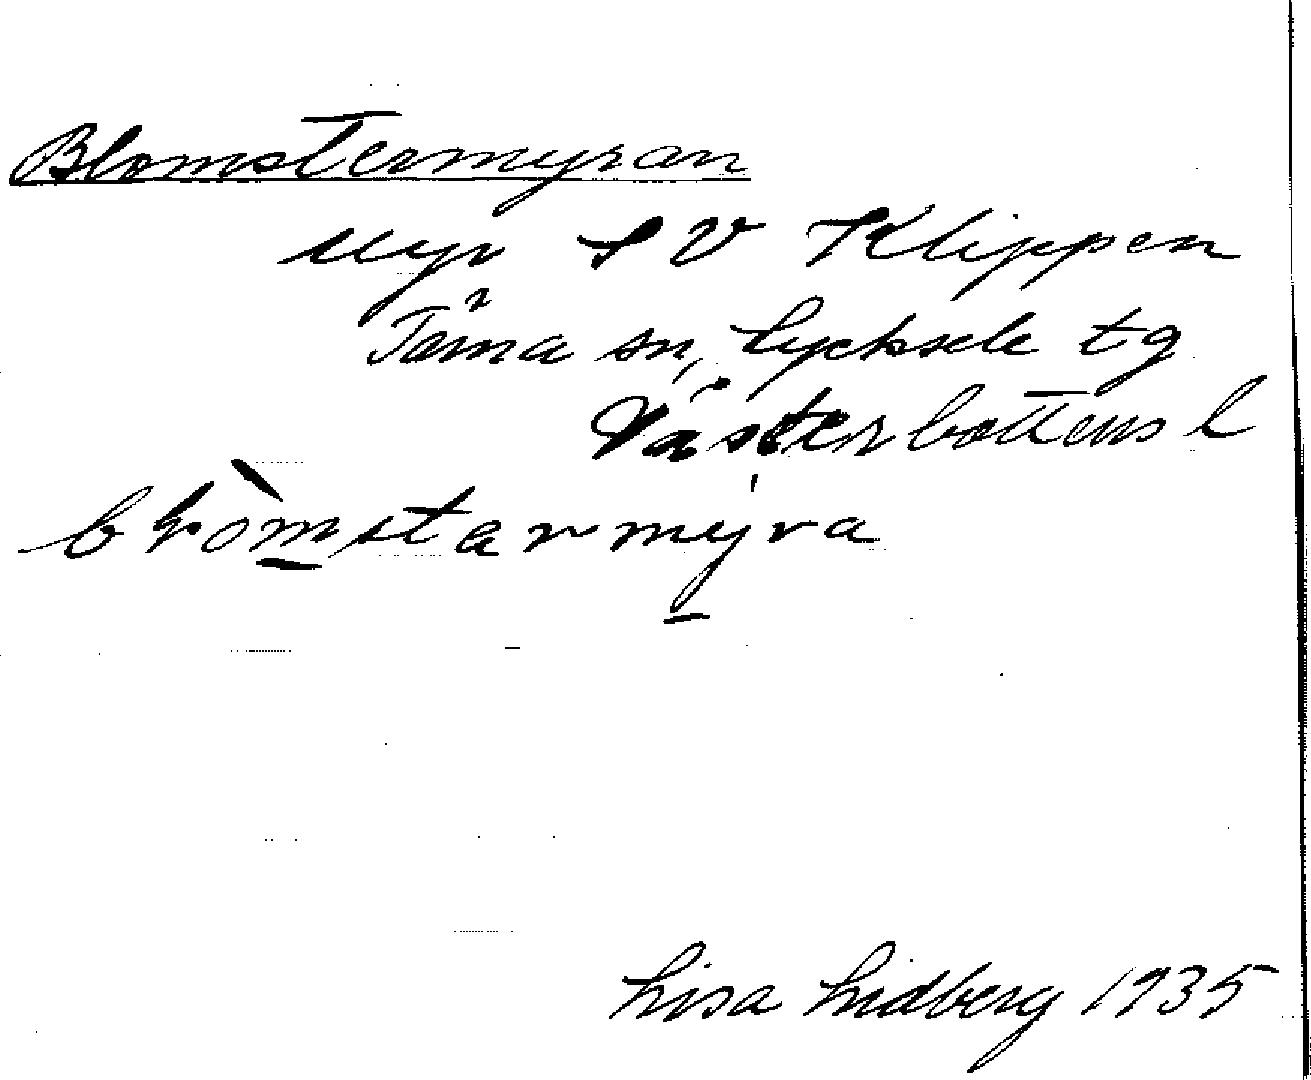 Blomstermyran
myr SV Klippen
Tärna sn, Lycksele tg
Västerbottens l
bɽòm̲starmy̲ra
Lisa Lidberg 1935